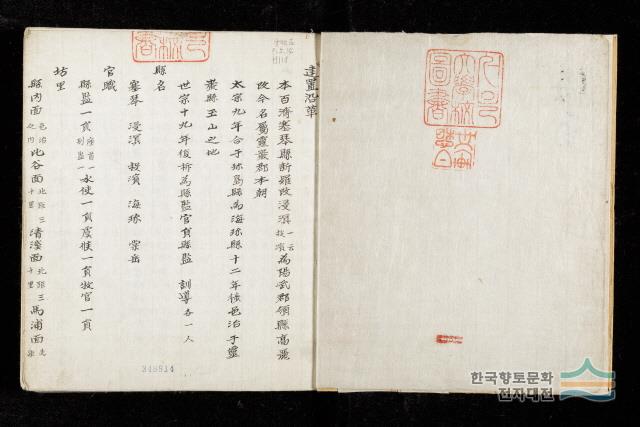 建置沿革
本百濟塞琴縣新羅改浸溟一云投濱爲陽武郡領縣高麗
改今名屬靈巖郡本朝
太宗九年合于珍島縣爲海珍縣十二年移邑治于靈
巖縣玉山之地
世宗十九年復析爲縣監官員縣監 訓導各一人
縣名
塞琴 浸溟 投濱 海珍 棠岳
官職
縣監一員座首一別監一
坊里
縣內面邑治之內比谷面北距三十里清溪面北距三十里馬浦面
348914
한국향토문화
전자대전